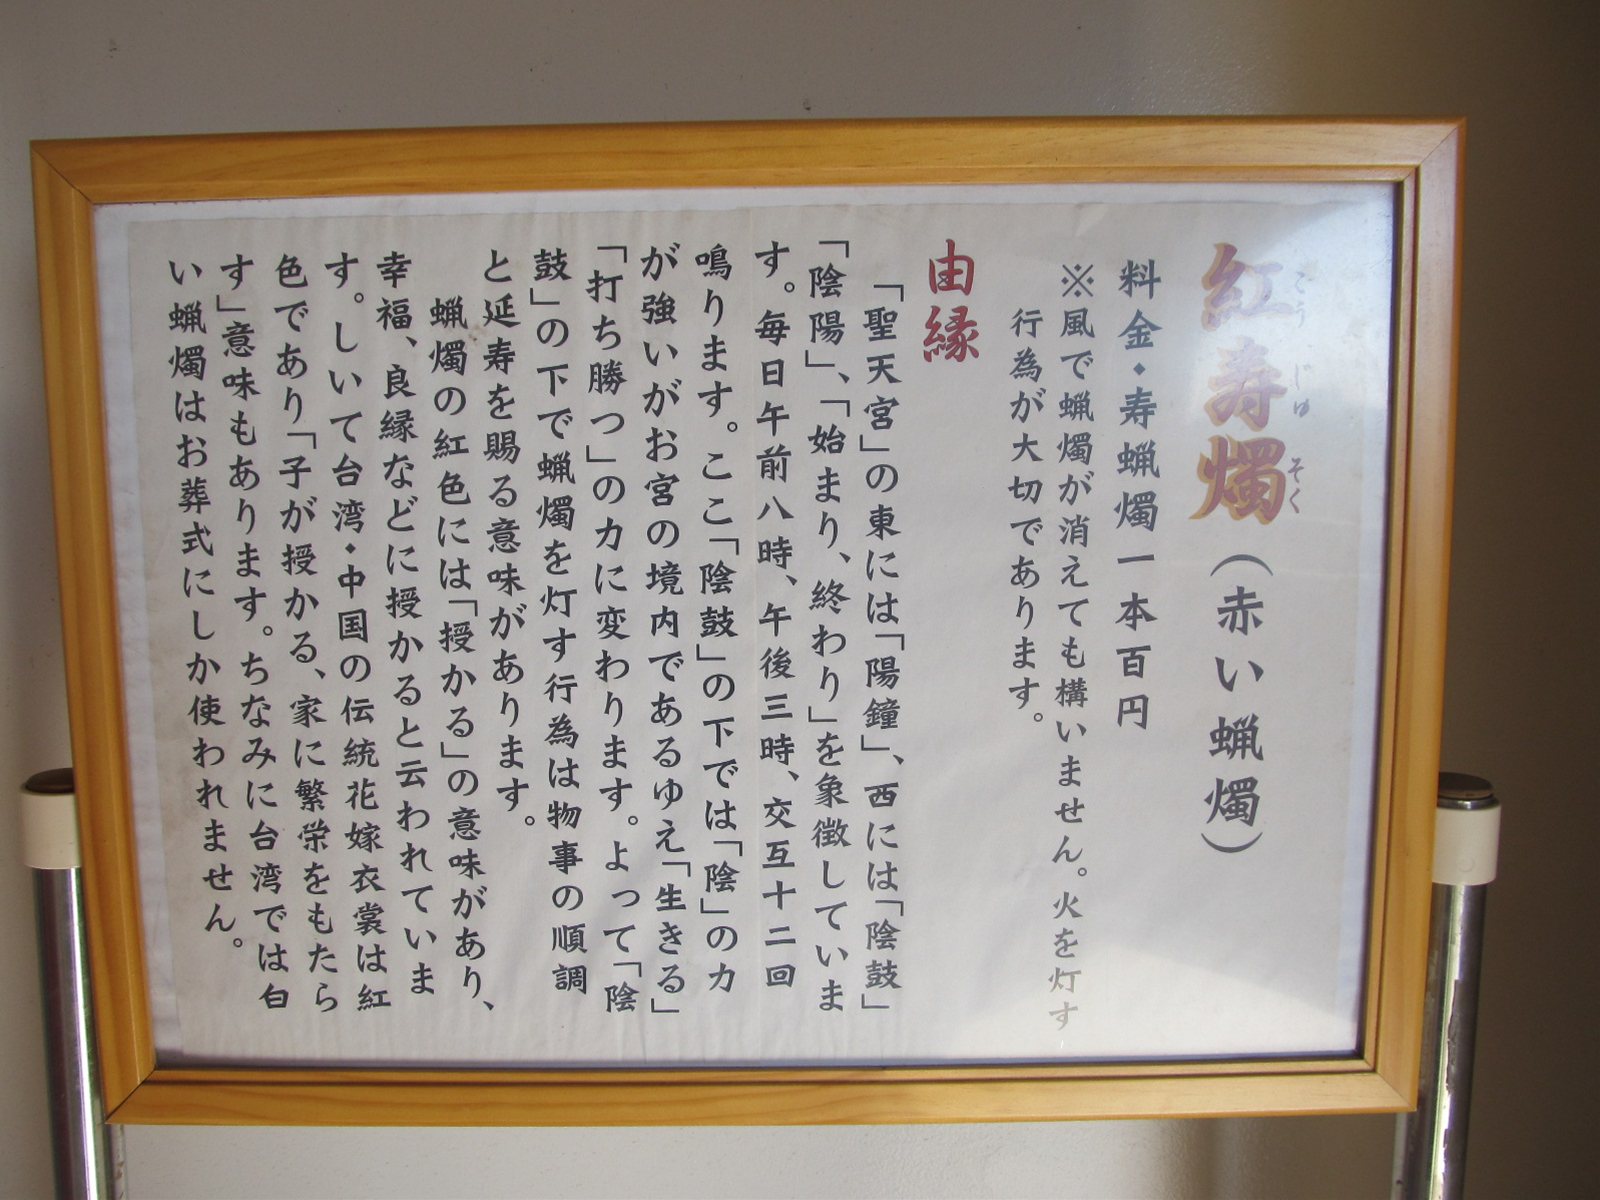 紅寿燭（赤い蝋燭）
こうじゅそく
料金・寿蝋燭一本百円
※風で蝋燭が消えても構いません。火を灯す
行為が大切であります。
由縁
「聖天宮」の東には「陽鐘」、西には「陰鼓」
「陰陽」、「始まり、終わり」を象徴していま
す。毎日午前八時、午後三時、交互十二回
鳴ります。ここ「陰鼓」の下では「陰」の力
が強いがお宮の境内であるゆえ「生きる」
「打ち勝つ」の力に変わります。よって「陰
鼓」の下で蝋燭を灯す行為は物事の順調
と延寿を賜る意味があります。
蝋燭の紅色には「授かる」の意味があり、
幸福、良縁などに授かると云われていま
す。しいて台湾・中国の伝統花嫁衣裳は紅
色であり「子が授かる、家に繁栄をもたら
す」意味もあります。ちなみに台湾では白
い蝋燭はお葬式にしか使われません。